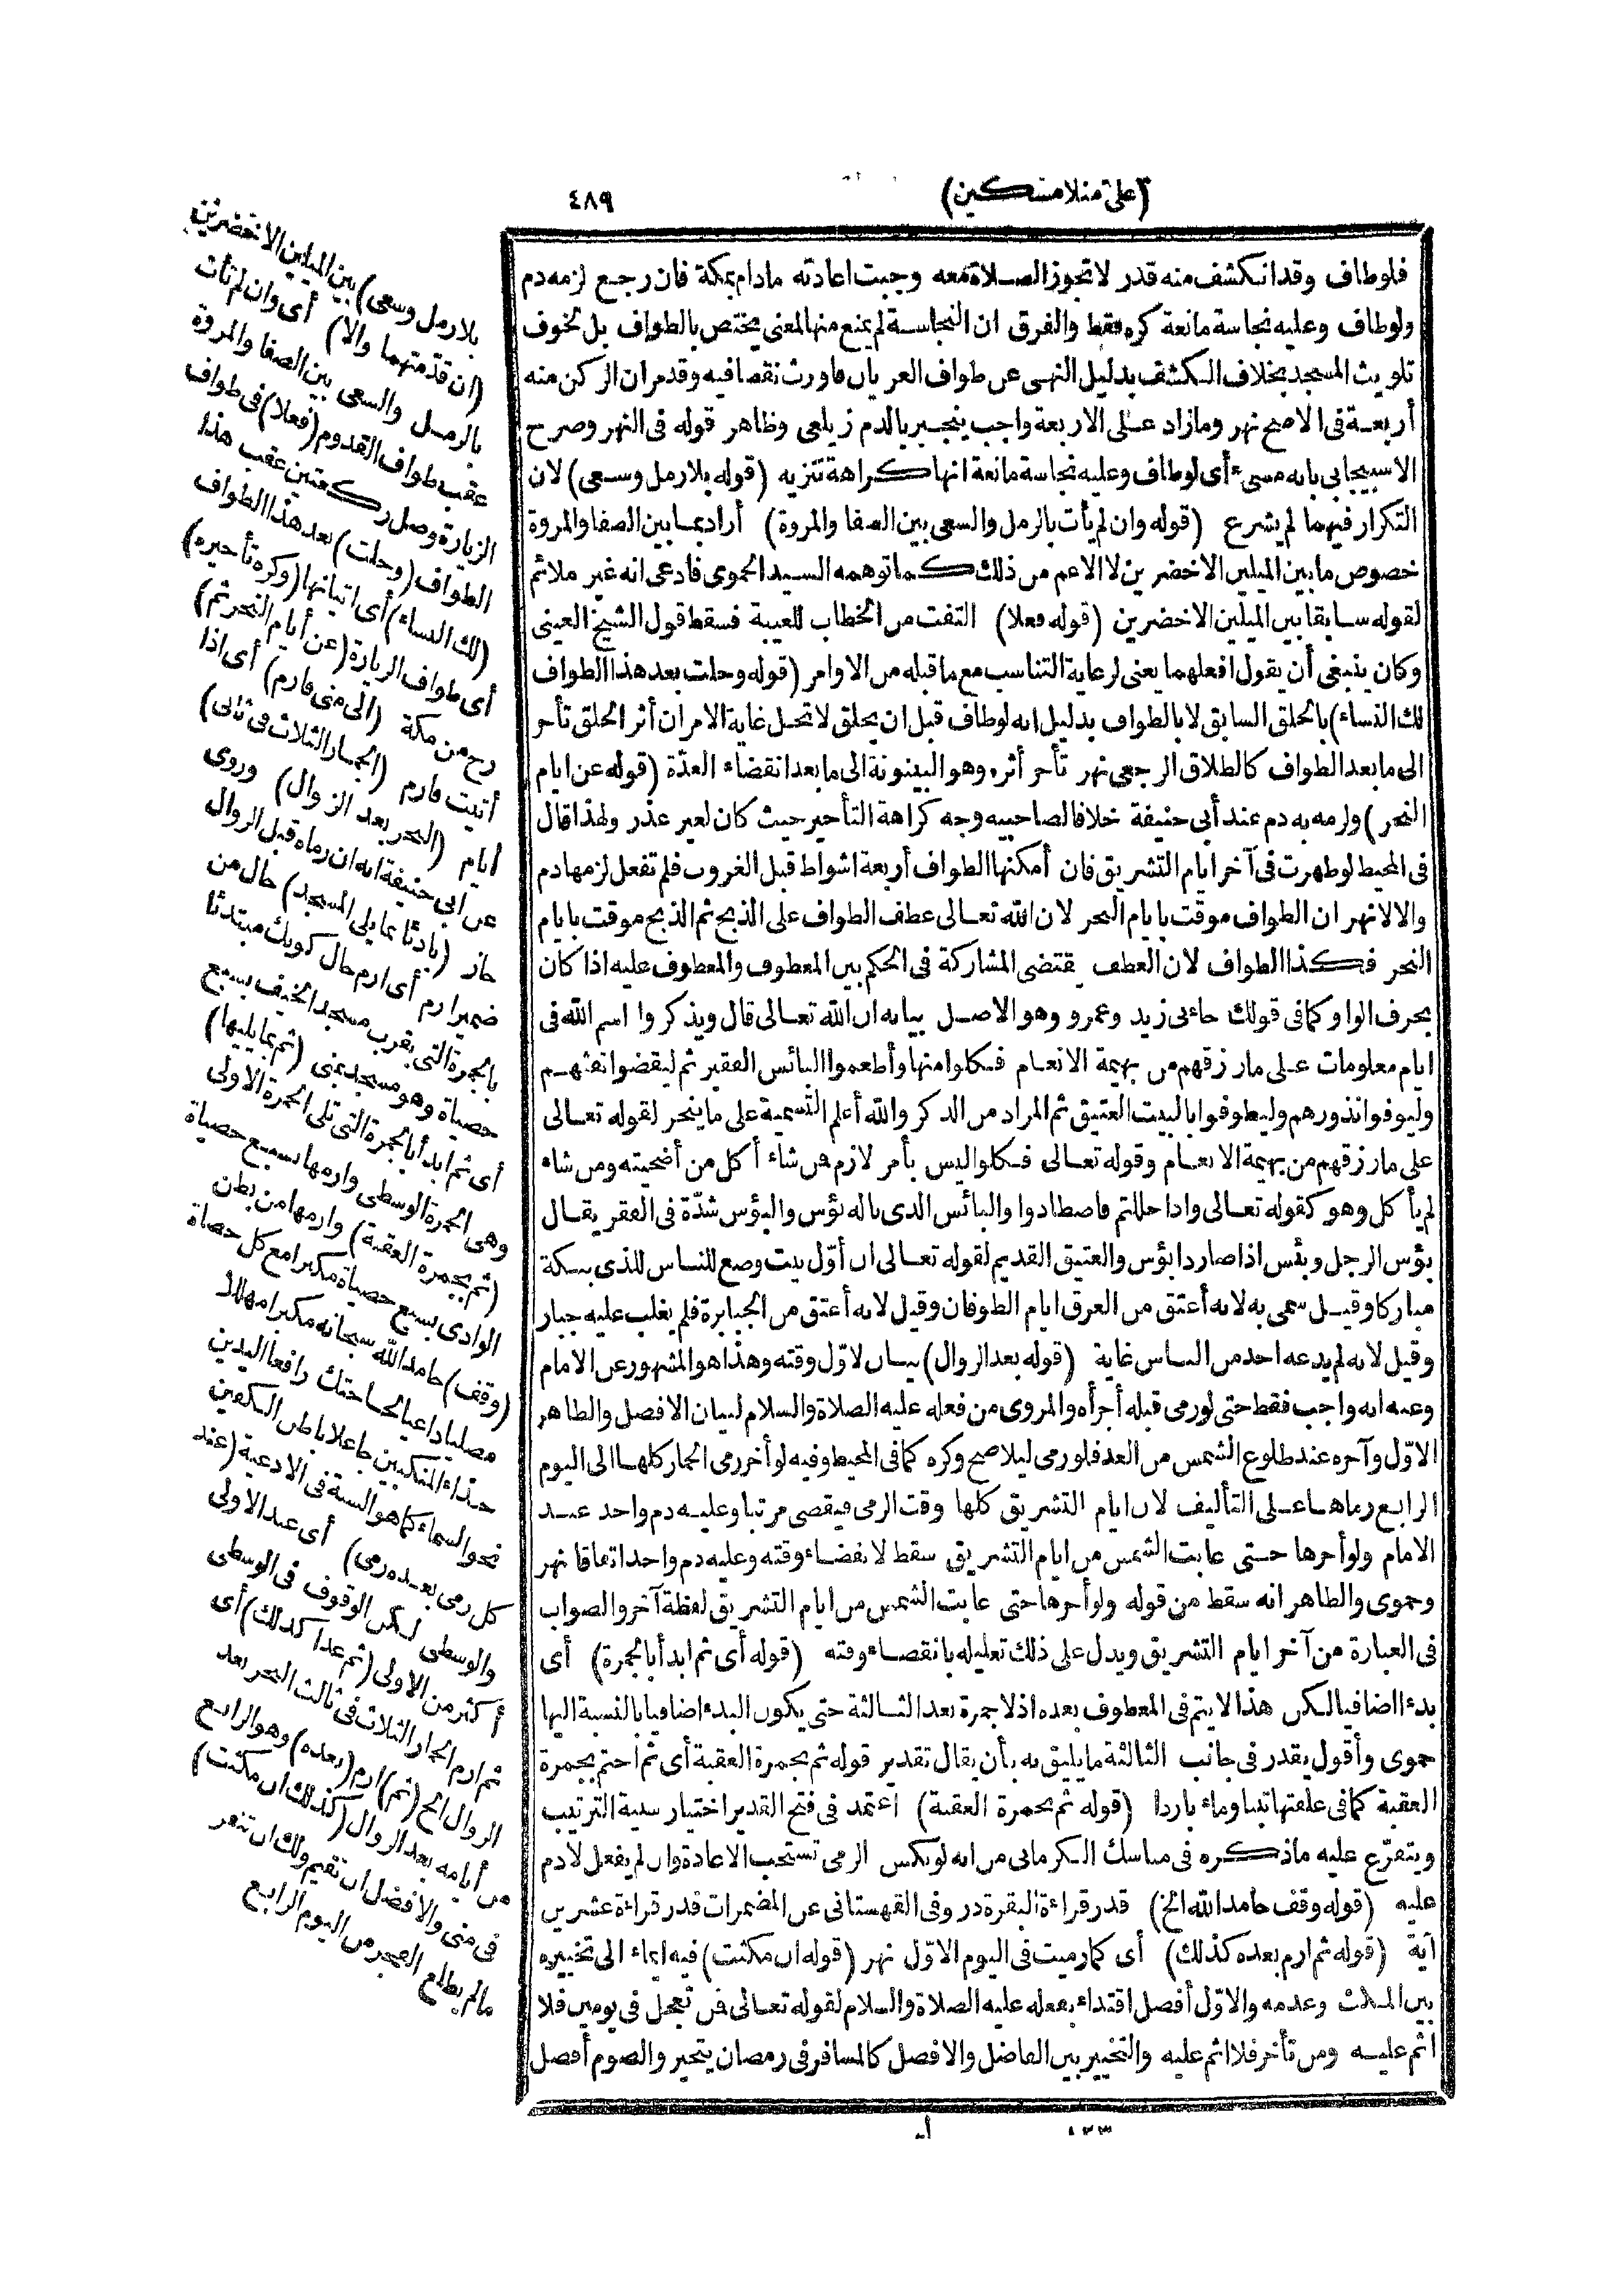 (على منلا مسكين)
٤٨٩
فلو طاف وقد انكشف منه قدر لا تجوز الصلاة معه وجبت اعادته مادام بمكة فان رجع لزمه دم
ولو طاف وعليه نجاسة مانعة كره فقط والفرق ان النجاسة لم يمنع منها المعنى يختص بالطواف بل لخوف
تلويث المسجد بخلاف الكشف بدليل النهى عن طواف العريان فاورث نقصا فيه وقدمر ان الركن منه
أربعة فى الاصح نهر ومازاد على الاربعة واجب ينجبر بالدم زيلعى وظاهر قوله فى النهر وصرح
الاسبيجابى بانه مسىء أى لو طاف وعليه نجاسة مانعة انها كراهة تنزيه (قوله بلا رمل وسعى) لان
التكرار فيهما لم يشرع (قوله وان لم يأت بالرمل والسعى بين الصفا والمروة) أراد بما بين الصفا والمروة
خصوص ما بين الميلين الاخضرين لا الاعم من ذلك كما توهمه السيد الحموى فادعى انه غير ملائم
لقوله سابقا بين الميلين الاخضرين (قوله فعلا) التفت من الخطاب للغيبة فسقط قول الشيخ العينى
وكان ينبغى أن يقول افعلهما يعنى لرعاية التناسب مع ما قبله من الاوامر (قوله وحلت بعد هذا الطواف
لك النساء) بالحلق السابق لا بالطواف بدليل انه لو طاف قبل ان يحلق لا تحل غاية الامر ان أثر الحلق تأخر
الى ما بعد الطواف كالطلاق الرجعى نهر تأخر أثره وهو البينونة الى ما بعد انقضاء العدّة (قوله عن ايام
النحر) ولزمه به دم عند أبى حنيفة خلافا لصاحبيه وجه كراهة التأخير حيث كان لغير عذر ولهذا قال
فى المحيط لو طهرت فى آخر ايام التشريق فان أمكنها الطواف أربعة اشواط قبل الغروب فلم تفعل لزمها دم
والا لا نهر ان الطواف موقت بايام النحر لان الله تعالى عطف الطواف على الذبح ثم الذبح موقت بايام
النحر فكذا الطواف لان العطف يقتضى المشاركة فى الحكم بين المعطوف والمعطوف عليه اذا كان
بحرف الواو كما فى قولك جاءنى زيد وعمرو وهو الاصل بيانه ان الله تعالى قال ويذكروا اسم الله فى
ايام معلومات على مارزقهم من بهيمة الانعام فكلوا منها وأطعموا البائس الفقير ثم ليقضوا تفثهم
وليوفوا نذورهم وليطوفوا بالبيت العتيق ثم المراد من الذكر والله أعلم التسمية على ما ينحر لقوله تعالى
على مارزقهم من بهيمة الانعام وقوله تعالى فكلوا ليس بأمر لازم فن شاء أكل من أضحيته ومن شاء
لم يأكل وهو كقوله تعالى واذا حللتم فاصطادوا والبائس الذى باله بؤس والبؤس شدّة فى الفقر يقال
بؤس الرجل وبئس اذا صار ذا بؤس والعتيق القديم لقوله تعالى ان أوّل بيت وضع للناس للذى ببكة
مباركا وقيل سمى به لانه أعتق من الغرق ايام الطوفان وقيل لانه أعتق من الجبابرة فلم يغلب عليه جبار
وقيل لانه لم يدعه احد من الناس غاية (قوله بعد الزوال) بيان لاوّل وقته وهذا هو المشهور عن الامام
وعنه انه واجب فقط حتى لو رمى قبله أجزأه والمروى من فعله عليه الصلاة والسلام لبيان الافضل والظاهر
الاوّل وآخره عند طلوع الشمس من الغد فلو رمى ليلا صح وكره كما فى المحيط وفيه لو أخر رمى الجمار كلها الى اليوم
الرابع رماها على التأليف لان ايام التشريق كلها وقت الرمى فيقضى مرتبا وعليه دم واحد عند
الامام ولو أخرها حتى غابت الشمس من ايام التشريق سقط لانقضاء وقته وعليه دم واحد اتفاقا نهر
وحموى والظاهر انه سقط من قوله ولو أخرها حتى غابت الشمس من ايام التشريق لفظة آخر والصواب
فى العبارة من آخر ايام التشريق ويدل على ذلك تعليله بانقضاء وقته (قوله أى ثم ابدأ بالجمرة) أى
بدءا اضافيا لكن هذا لا يتم فى المعطوف بعده اذ لا جمرة بعد الثالثة حتى يكون البدء اضافيا بالنسبة اليها
حموى وأقول يقدر فى جانب الثالثة ما يليق به بأن يقال تقدير قوله ثم بجمرة العقبة أى ثم اختم بجمرة
العقبة كما فى علفتها تبنا وماء باردا (قوله ثم بجمرة العقبة) اعتمد فى فتح القدير اختيار سنية الترتيب
ويتفرّع عليه ماذكره فى مناسك الكرمانى من انه لو نكس الرمى تستحب الاعادة وان لم يفعل لا دم
عليه (قوله وقف حامدا لله الخ) قدر قراءة البقرة در وفى القهستانى عن المضمرات قدر قراءة عشرين
آية (قوله ثم ارم بعده كذلك) أى كما رميت فى اليوم الاوّل نهر (قوله ان مكثت) فيه ايماء الى تخييره
بين المكث وعدمه والاوّل أفضل اقتداء بفعله عليه الصلاة والسلام لقوله تعالى فن تعجل فى يومين فلا
اثم عليه ومن تأخر فلا اثم عليه والتخيير بين الفاضل والافضل كالمسافر فى رمضان يتخير والصوم أفضل
بلا رمل وسعى) بين الميلين الاخضرين
(ان قدّمتهما والا) أى وان لم تأت
بالرمل والسعى بين الصفا والمروة
عقب طواف القدوم (فعلا) فى طواف
الزيارة وصل ركعتين عقب هذا
الطواف (وحلت) بعد هذا الطواف
(لك النساء) أى اتيانها (وكره تأخيره)
أى طواف الزيارة (عن أيام النحر ثم)
رح من مكة (الى منى فارم) أى اذا
أتيت فارم (الجمار الثلاث فى ثانى)
أيام (النحر بعد الزوال) وروى
عن أبى حنيفة انه ان رماه قبل الزوال
جاز (بادئا بما يلى المسجد) حال من
ضمير ارم أى ارم حال كونك مبتدئا
بالجمرة التى بقرب مسجد الخيف بسبع
حصياة وهو مسجد بمنى (ثم بما يليها)
أى ثم ابدأ بالجمرة التى تلى الجمرة الاولى
وهى الجمرة الوسطى وارمها بسبع حصياة
(ثم بجمرة العقبة) وارمها من بطن
الوادى بسبع حصياة مكبرا مع كل حصاة
(وقف) حامدا لله سبحانه مكبرا مهللا
مصليا داعيا لحاجتك رافعا اليدين
حذاء المنكبين جاعلا باطن الكفين
نحو السماء كما هو السنة فى الادعية (عند
كل رمى بعده رمى) أى عند الاولى
والوسطى لكن الوقوف فى الوسطى
أكثر من الاولى (ثم غدا كذلك) أى
ثم ارم الجمار الثلاث فى ثالث النحر بعد
الزوال الخ (ثم) ارم (بعده) وهو الرابع
من أيامه بعد الزوال (كذلك ان مكثت)
فى منى والافضل ان تقيم ولك ان تنفر
مالم يطلع الفجر من اليوم الرابع
١٢٣